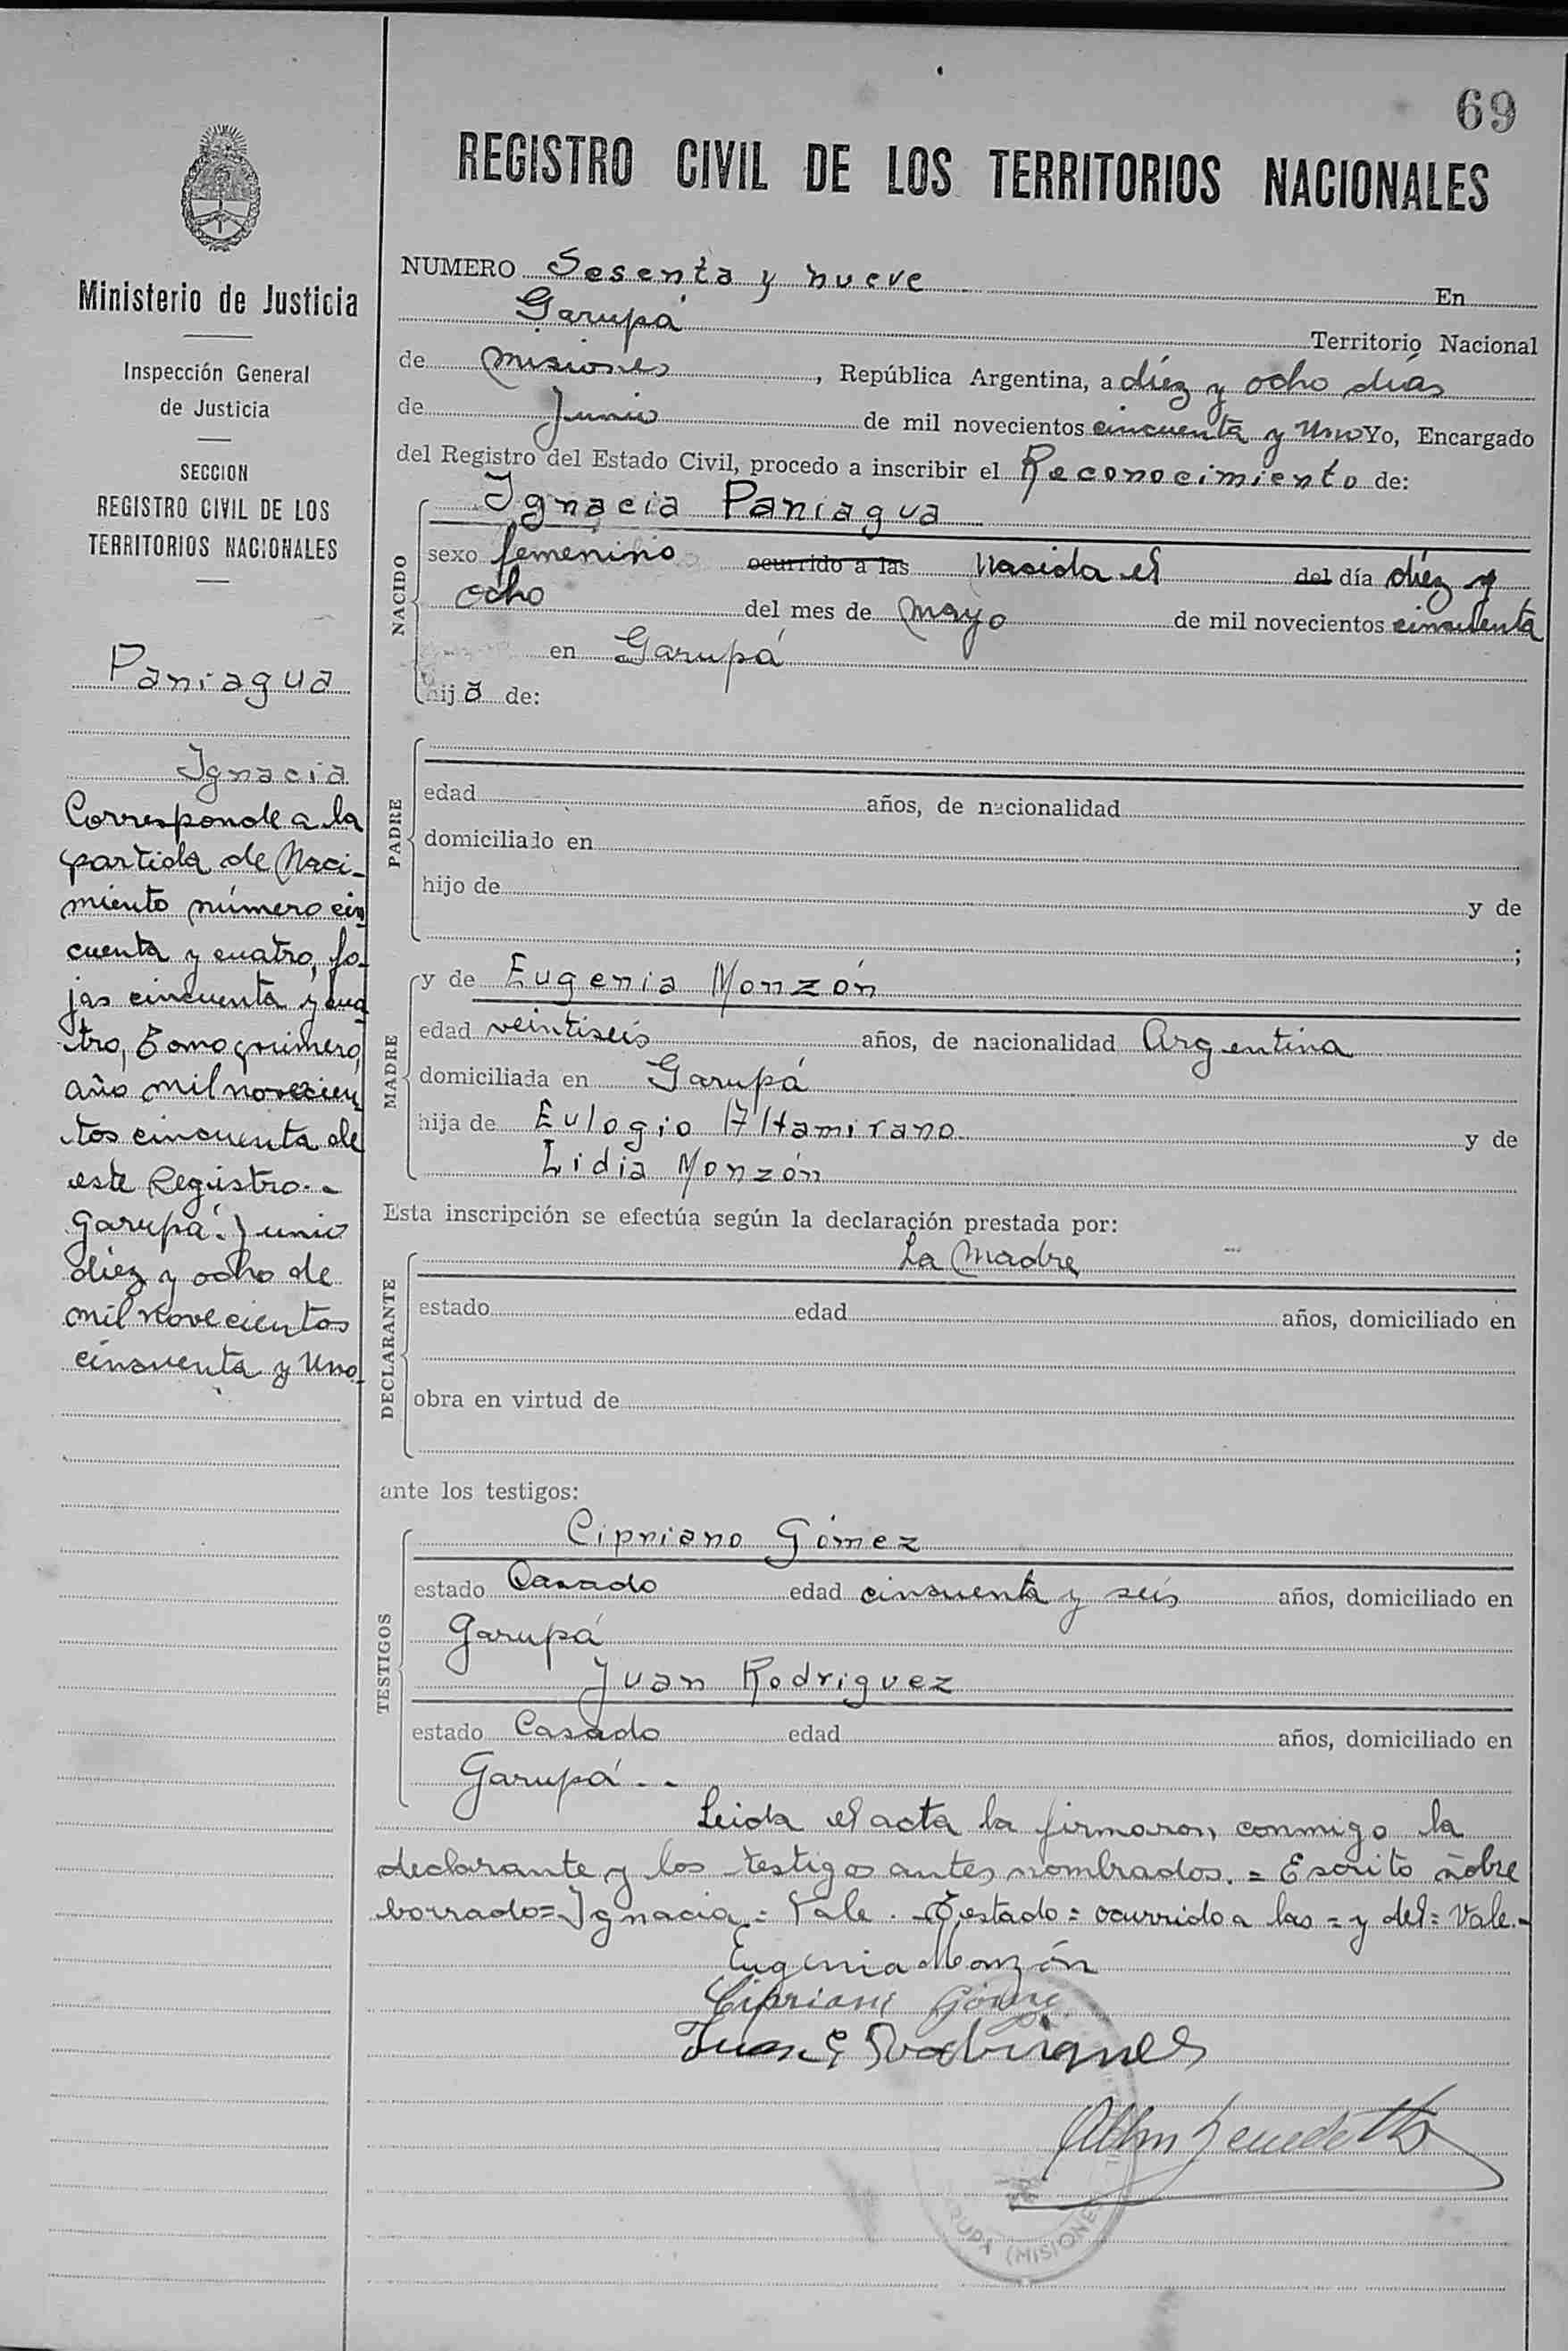 69
REGISTRO CIVIL DE LOS TERRITORIOS NACIONALES
Ministerio de Justicia
Inspección General
de Justicia
SECCION
REGISTRO CIVIL DE LOS
TERRITORIOS NACIONALES
Paniagua
Ignacia
Corresponde a la
partida de Naci-
miento número cin
cuenta y cuatro, fo-
jas cincuenta y cua
tro, Tomo primero,
año mil novecien
tos cincuenta de
este Registro.-
Garupá: Junio
diez y ocho de
mil novecientos
cincuenta y uno.
NUMERO Sesenta y nueve En
Garupá Territorio Nacional
de Misiones, República Argentina, a diez y ocho días
de Junio de mil novecientos cincuenta y Uno Yo, Encargado
del Registro del Estado Civil, procedo a inscribir el Reconocimiento de:
NACIDO
Ignacia Paniagua
sexo femenino ocurrido a las Nacida el del día diez y
ocho del mes de Mayo de mil novecientos cincuenta
en Garupá
hija de:
PADRE
edad años, de nacionalidad
domiciliado en
hijo de y de
;
MADRE
y de Eugenia Monzón
edad veintiseis años, de nacionalidad Argentina
domiciliada en Garupá
hija de Eulogio Altamirano y de
Lidia Monzón
Esta inscripción se efectúa según la declaración prestada por:
DECLARANTE
La Madre
estado edad años, domiciliado en
obra en virtud de
ante los testigos:
TESTIGOS
Cipriano Gómez
estado Casado edad cincuenta y seis años, domiciliado en
Garupá
Juan Rodriguez
estado Casado edad años, domiciliado en
Garupá.-
Leida el acta la firmaron, conmigo la
declarante y los testigos antes nombrados. = Escrito sobre
borrado = Ignacia = Vale. Testado = ocurrido a las = y del = Vale.-
Eugenia Monzón
Cipriano Gómez
Juan Rodrigues
(MISIONES